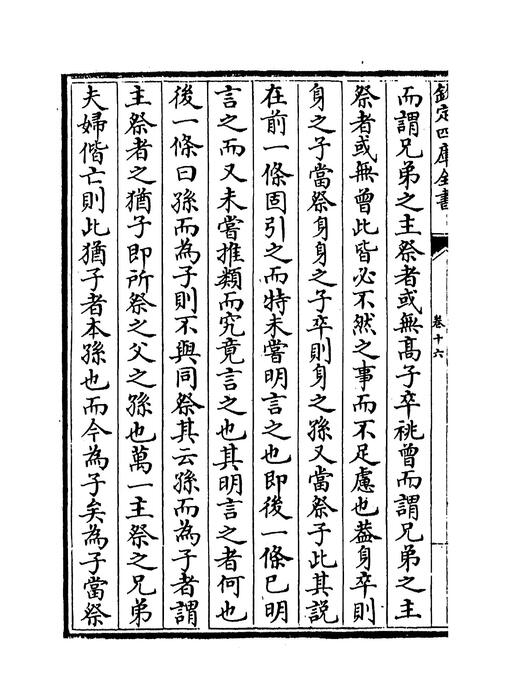 欽定四庫全書
卷十六
而謂兄弟之主祭者或無髙子卒祧曾而謂兄弟之主
祭者或無曾此皆必不然之事而不足慮也葢身卒則
身之子當祭身身之子卒則身之孫又當祭子此其説
在前一條固引之而特未嘗明言之也即後一條已明
言之而又未嘗推類而究竟言之也其明言之者何也
後一條曰孫而為子則不與同祭其云孫而為子者謂
主祭者之猶子即所祭之父之孫也萬一主祭之兄弟
夫婦偕亡則此猶子者本孫也而今為子矣為子當祭